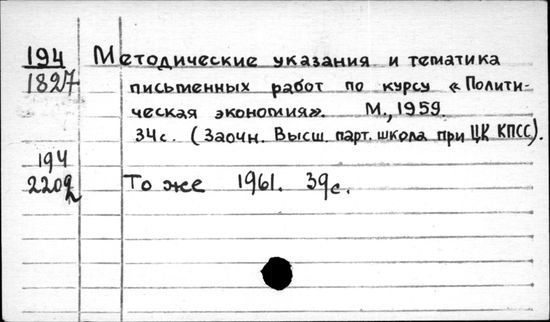 194 Методические указания и тематика
1827 письменных работ по курсу «Полити-
ческая экономия». М., 1959.
34с. (Заочн. Высш. парт. школа при ЦК КПСС).
194
2202 То же 1961. 39с.